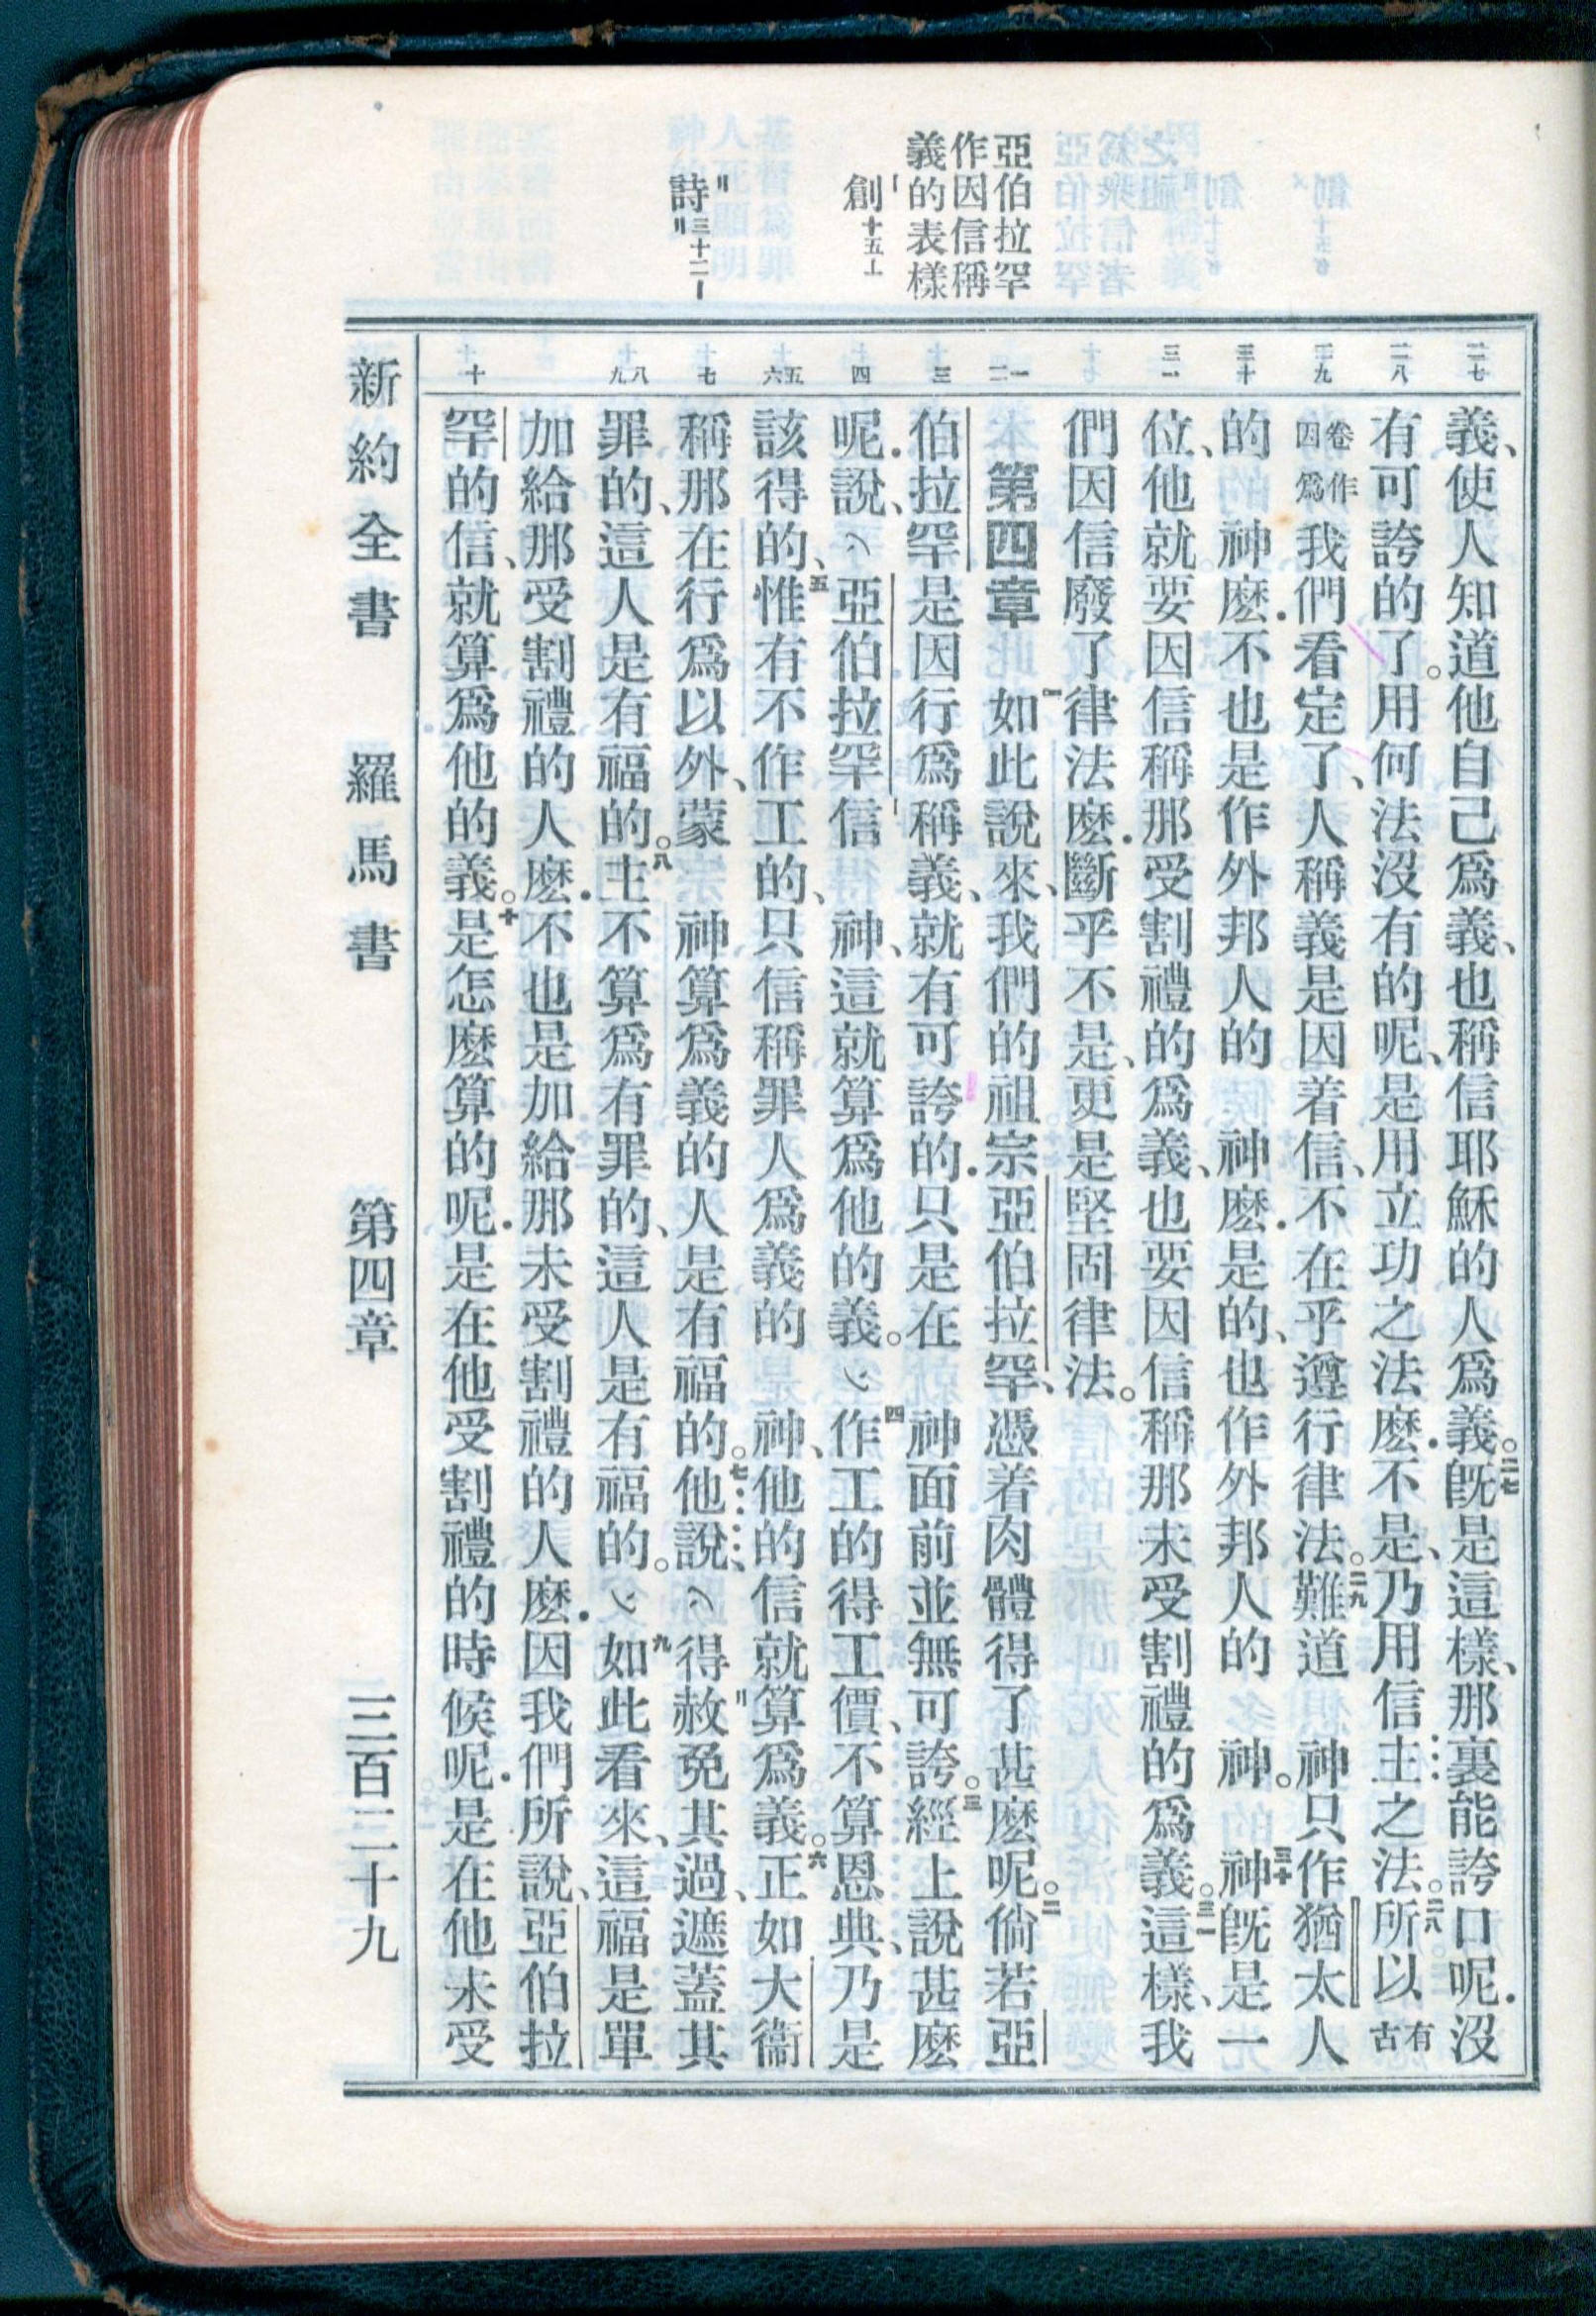 亞伯拉罕
作因信稱
義的表樣
創十五6
詩三十二1
二七
二八
二九
三十
三一
一二
三
四
五六
七
八九
十
義、使人知道他自己爲義、也稱信耶穌的人爲義。二七既是這樣、那裏能誇口呢．沒
有可誇的了。用何法沒有的呢、是用立功之法麽．不是、乃用信主之法。二八所以有古
卷作因爲我們看定了、人稱義是因着信、不在乎遵行律法。二九難道 神只作猶太人
的 神麽．不也是作外邦人的 神麽．是的、也作外邦人的 神。三十神既是一
位、他就要因信稱那受割禮的爲義、也要因信稱那未受割禮的爲義。三一這樣、我
們因信廢了律法麽．斷乎不是、更是堅固律法。
第四章 一如此說來、我們的祖宗亞伯拉罕、憑着肉體得了甚麽呢。二倘若亞
伯拉罕是因行爲稱義、就有可誇的．只是在 神面前並無可誇。三經上說甚麽
呢．說、亞伯拉罕信 神、這就算爲他的義。四作工的得工價、不算恩典、乃是
該得的、五惟有不作工的、只信稱罪人爲義的 神、他的信就算爲義。六正如大衞
稱那在行爲以外、蒙 神算爲義的人是有福的。七他說、得赦免其過、遮蓋其
罪的、這人是有福的。八主不算爲有罪的、這人是有福的。九如此看來、這福是單
加給那受割禮的人麽．不也是加給那未受割禮的人麽．因我們所說、亞伯拉
罕的信、就算爲他的義。十是怎麽算的呢．是在他受割禮的時候呢．是在他未受
新約全書 羅馬書 第四章 三百二十九